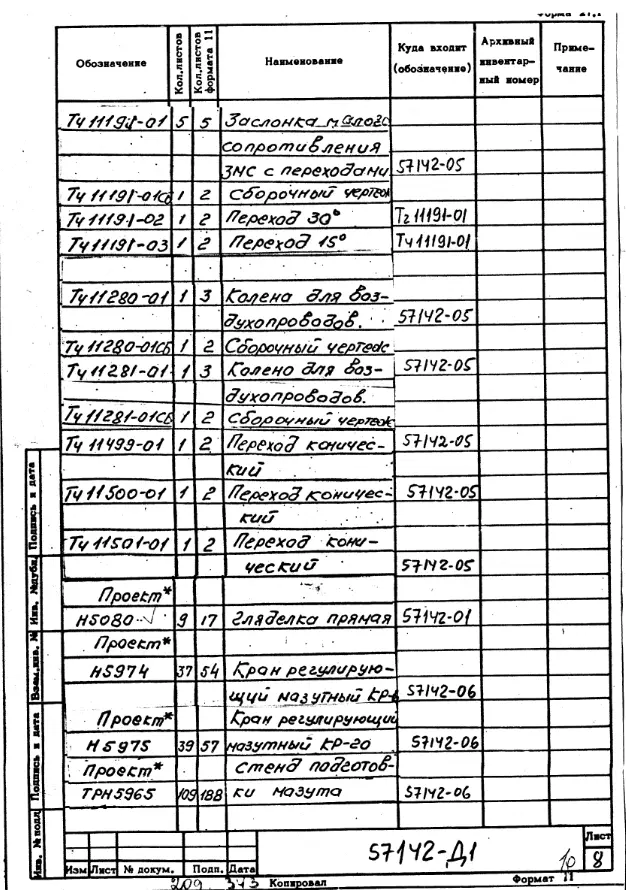 Форма 21,1
Обозначение Кол.листов Кол.листов формата 11 Наименование Куда входит (обозначение) Архивный инвентарный номер Примечание
Тч 11191-01 5 5 Заслонка малого
сопротивления
ЗМС с переходами 57142-05
Тч 11191-01СБ 1 2 Сборочный чертеж
Тч 11191-02 1 2 Переход 30° Тч 11191-01
Тч 11191-03 1 2 Переход 15° Тч 11191-01
Тч 11280-01 1 3 Колена для воз-
духопроводов. 57142-05
Тч 11280-01СБ 1 2 Сборочный чертеж
Тч 11281-01 1 3 Колено для воз- 57142-05
духопроводов.
Тч 11281-01СБ 1 2 Сборочный чертеж
Тч 11499-01 1 2 Переход коничес- 57142-05
кий
Тч 11500-01 1 2 Переход коничес- 57142-05
кий
Тч 11501-01 1 2 Переход кони-
ческий 57142-05
Проект*
Н5080 9 17 Гляделка прямая 57142-01
Проект*
Н5974 37 54 Кран регулирую-
щий мазутный КР- 57142-06
Проект* Кран регулирующий
Н5975 39 57 мазутный КР-го 57142-06
Проект* Стенд подготов-
ТРН5965 109 188 ки мазута 57142-06
Инв. № подл. Подпись и дата Взам.инв. № Инв. №дубл. Подпись и дата
57142-Д1
Лист
10 8
Изм Лист № докум. Подп. Дата
209 343 Копировал Формат 11